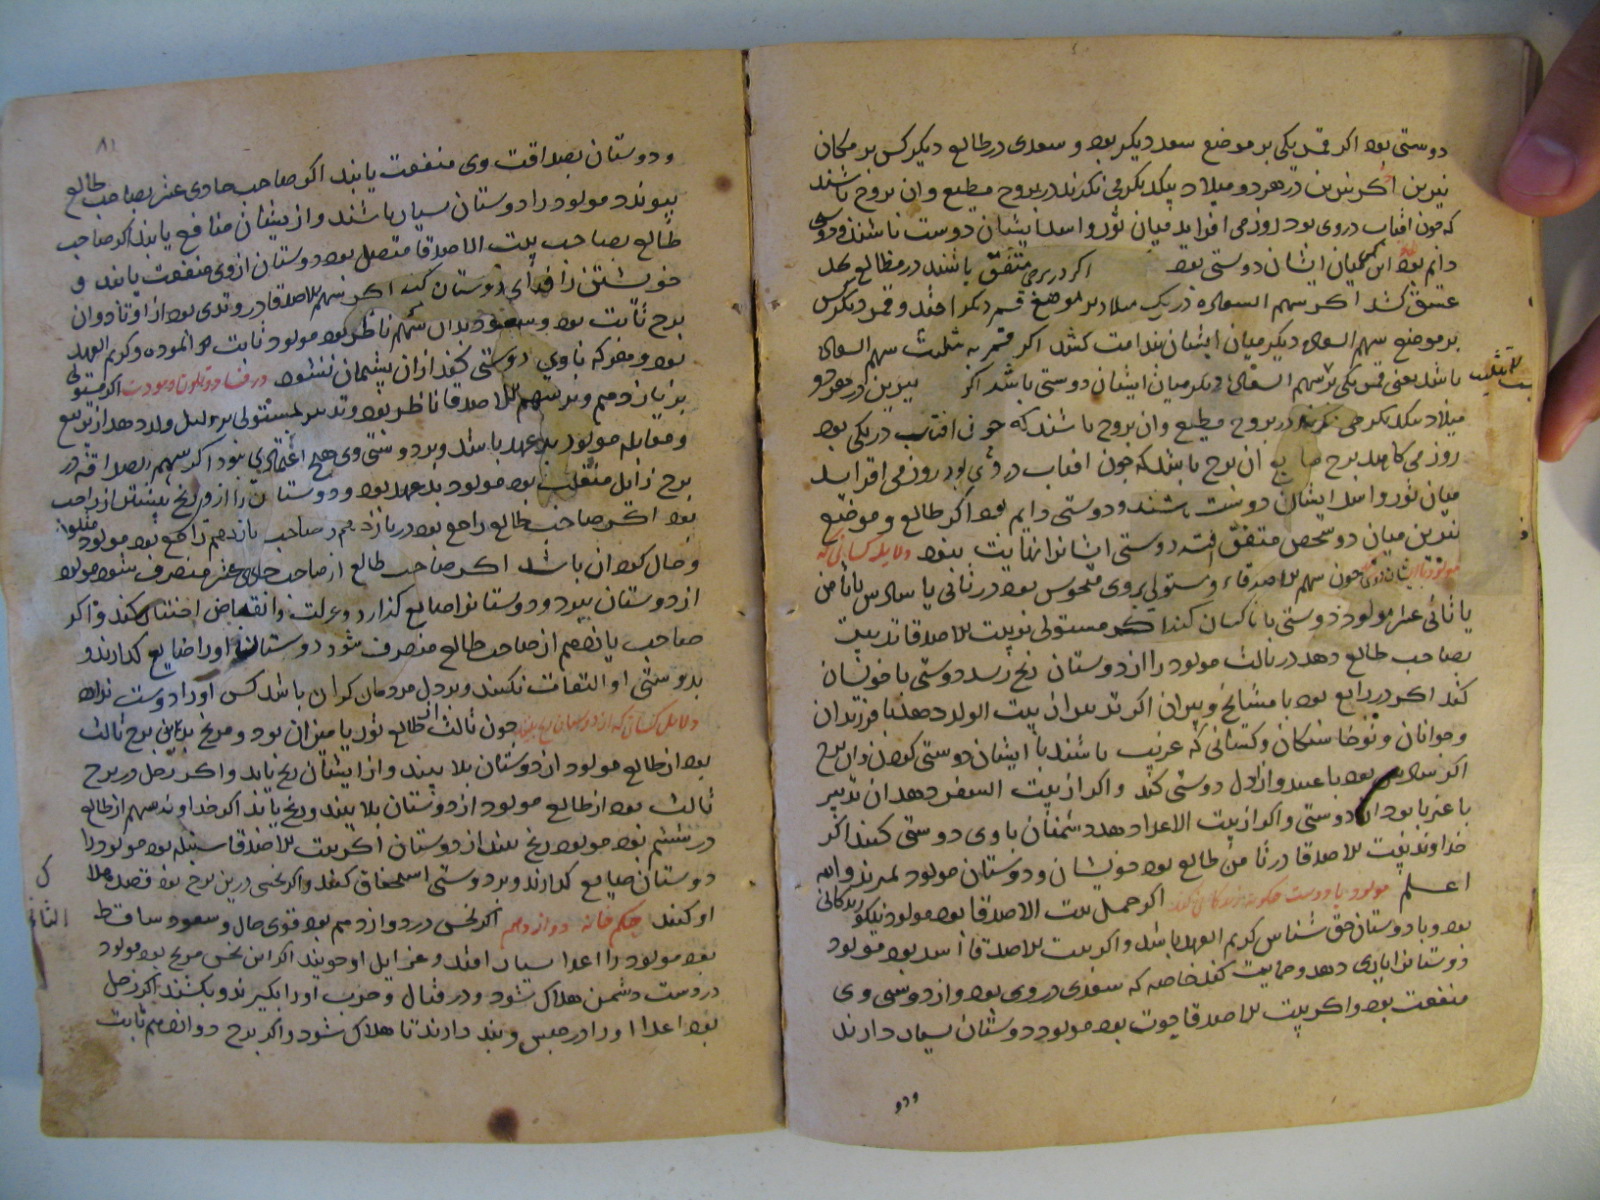 دوستی بود اکر قمر یکی بر موضع سعد دیکر بود و سعدی در طالع دیکر کس بر مکان
نیرین اکر نیرین در هر دو میلاد بیکدیکر می نکرند در بروج مطیع و ان بروج باشند
که چون افتاب در وی بود روز می افزاید میان ثور و اسد ایشان دوست باشند و دوستی
دایم بود میان ایشان دوستی بود اکر در برجی متفق باشند در مطالع
عشق کشد اکر سهم السعاده در یک میلاد بر موضع قمر دیکر افتد و قمر دیکرکس
بر موضع سهم السعاده دیکر میان ایشان ندامت کشد اکر قمر به تثلیث سهم السعاده
باشد یعنی قمر یکی بر سهم السعاده دیکر میان ایشان دوستی باشد اکر نیرین در هر دو
میلاد بیکدیکر می نکرند در بروج مطیع و ان بروج باشند که چون افتاب در یکی بود
روز می کاهد برج ان برج باشد که چون افتاب در وی بود روز می افزاید
میان ثور و اسد ایشان دوست باشند و دوستی دایم بود اکر طالع و موضع
نیرین میان دو شخص متفق افتد دوستی ایشانرا نهایت نبود دلایل کسانی که
چون سهم الاصدقاء و مستولی بر وی منحوس بود در ثانی یا سادس یا ثامن
یا ثانی عشر مولود دوستی با ناکسان کند اکر مستولی بر بیت الاصدقا تدبیر
بصاحب طالع دهد در ثالث مولود را از دوستان رنج رسد دوستی با خویشان
کند اکر در رابع بود با مشایخ و پیران اکر تدبیر از بیت الولد دهد با فرزندان
و جوانان و نوخاستکان و کسانی که غریب باشند با ایشان دوستی کند و ان برج
اکر سادس بود با عبید و ازدل دوستی کند و اکر از بیت السفر دهد ان تدبیر
با غربا بود ان دوستی و اکر از بیت الاعدا دهد دشمنان با وی دوستی کنند اکر
خداوند بیت الاصدقا در ثامن طالع بود خویشان و دوستان مولود بمیرند والله
اعلم مولود با دوست چکونه زندکانی کند اکر حمل بیت الاصدقا بود مولود نیکو زندکانی
بود و با دوستان حق شناس کریم العهد باشد و اکر بیت الاصدقا اسد بود مولود
دوستانرا یاری دهد و حمایت کند خاصه که سعدی در وی بود و از دوستی وی
منفعت بود و اکر بیت الاصدقا حوت بود مولود دوستان بسیار دارند
ودو
۸۱
و دوستان بصداقت وی منفعت یابند اکر صاحب حادی عشر بصاحب طالع
پیوندد مولود را دوستان بسیار باشند و از ایشان منافع یابد اکر صاحب
طالع بصاحب بیت الاصدقا متصل بود دوستان از وی منفعت یابند و
خویشتن را فدای دوستان کند اکر سهم الاصدقا در وتدی بود از اوتاد و ان
برج ثابت بود و سعود بدان سهم ناظر بود مولود ثابت المودة و کریم العهد
بود و هر که با وی دوستی کند از ان پشیمان نشود اکر مستولی
بر یازدهم و بر سهم الاصدقا ناظر بود و تدبیر بمستولی بر دلیل ولد دهد از تربیع
و مقابله مولود بدعهد باشد و بر دوستی وی هیچ اعتمادی نبود اکر سهم الصداقة در
برج زایل منقلب بود مولود بدعهد بود و دوستان را از وی رنج بیشتر از راحت
بود اکر صاحب طالع راجع بود در یازدهم و صاحب یازدهم راجع بود مولود
و حال کردان باشد اکر صاحب طالع از صاحب حادی عشر منصرف شود مولود
از دوستان ببرد و دوستانرا ضایع کذارد و عزلت و انقباض اختیار کند و اکر
صاحب یازدهم از صاحب طالع منصرف شود دوستان او را ضایع کذارند و
بدوستی او التفات نکنند و بر دل مردمان کران باشد کس او را دوست ندارد
چون ثالث طالع ثور یا میزان بود و مریخ برج ثالث
بود از طالع مولود از دوستان بلا بیند و از ایشان رنج یابد و اکر زحل در برج
ثالث بود از طالع مولود از دوستان بلا بیند و رنج یابد اکر خداوند سهم از طالع
در ششم بود مولود رنج بیند از دوستان اکر بیت الاصدقا سنبله بود مولود را
دوستان ضایع کذارند و بر دوستی استخفاف کنند و اکر نحسی درین برج بود قصد هلاک
او کنند حکم خانه دوازدهم اکر نحس در دوازدهم بود قوی حال و سعود ساقط
بود مولود را اعدا بسیار افتد و غزایل او جویند اکر این نحس مریخ بود مولود
در دست دشمن هلاک شود و در قتال و حرب او را بکیرند و بکشند اکر زحل
بود اعدا او را در حبس و بند دارند تا هلاک شود و اکر برج دوازدهم ثابت